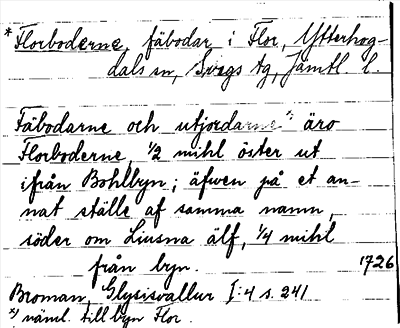 *Florboderne, fäbodar i Flor, Ytterhog-
dals sn, Svegs tg, Jämtl l.
Fäbodarne och utjordarne x) äro
Florboderne, 1/2 mihl öster ut
ifrån Bohlbyn; äfwen på et an-
nat ställe af samma namn,
söder om Liusna älf, 1/4 mihl
från byn. 1726
Broman, Glysisvallur I:4 s. 241
x) näml. till byn Flor.